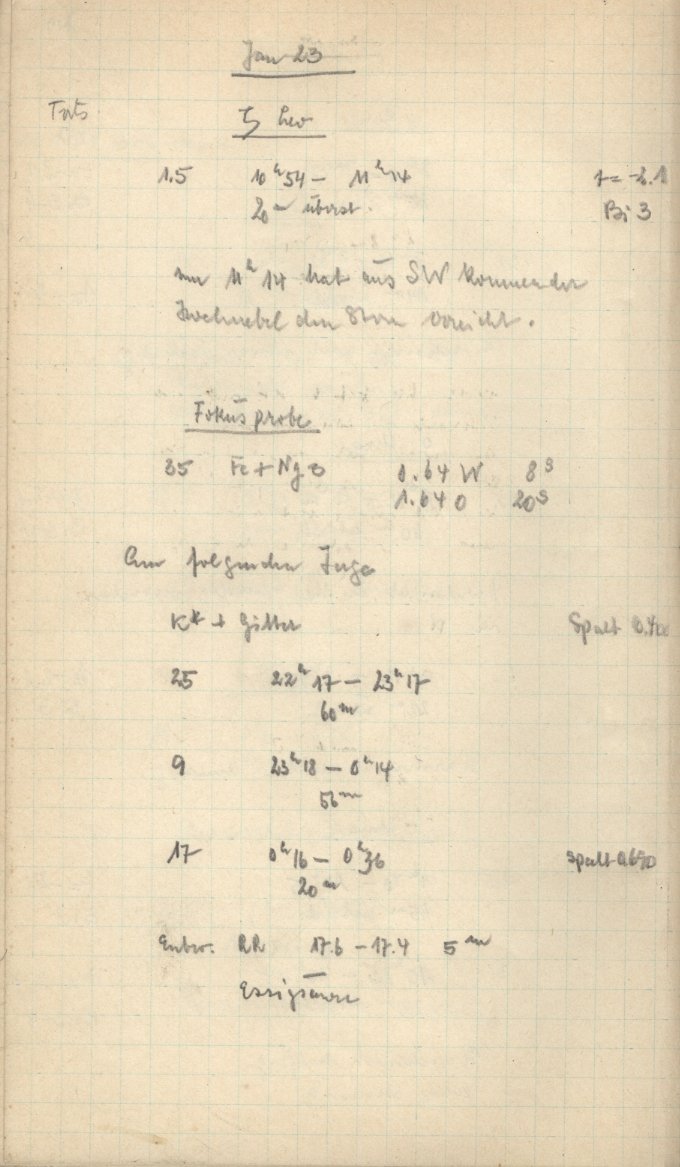 Jan 23
ζ Leo
1.5 10ʰ54 — 11ʰ14 t = -2.1
20ᵐ überst. Bi 3
um 11ʰ14 hat aus SW kommender
Hochnebel den Stern erreicht.
Fokusprobe
35 Fe + 0.64 W 8ˢ
1.64 O 20ˢ
Am folgenden Tage
K* + Gitter Spalt
25 22ʰ17 — 23ʰ17
60ᵐ
9 23ʰ18 — 0ʰ14
56ᵐ
17 0ʰ16 — 0ʰ36 Spalt 0.690
20ᵐ
Entw. RR 17.6 — 17.4 5ᵐ
Essigsäure